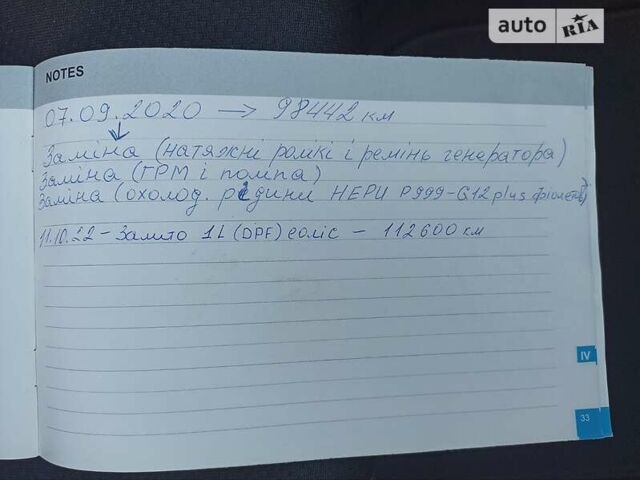 auto RIA
NOTES
07.09.2020 → 98442 км
Заміна (натяжні ролікі і ремінь генератора)
Заміна (ГРМ і помпа)
Заміна (охолод. рідини HEPU P999-G12 plus фіолет)
11.10.22 - Залито 1L (DPF) еоліс - 112600 км
IV
33